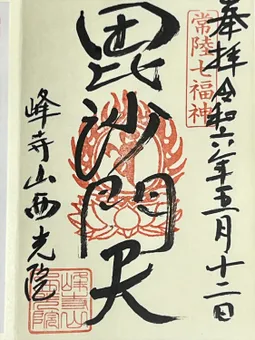 奉拝 令和六年五月十二日
常陸七福神
毘沙門天
峰寺山西光院
峰寺山
西光院